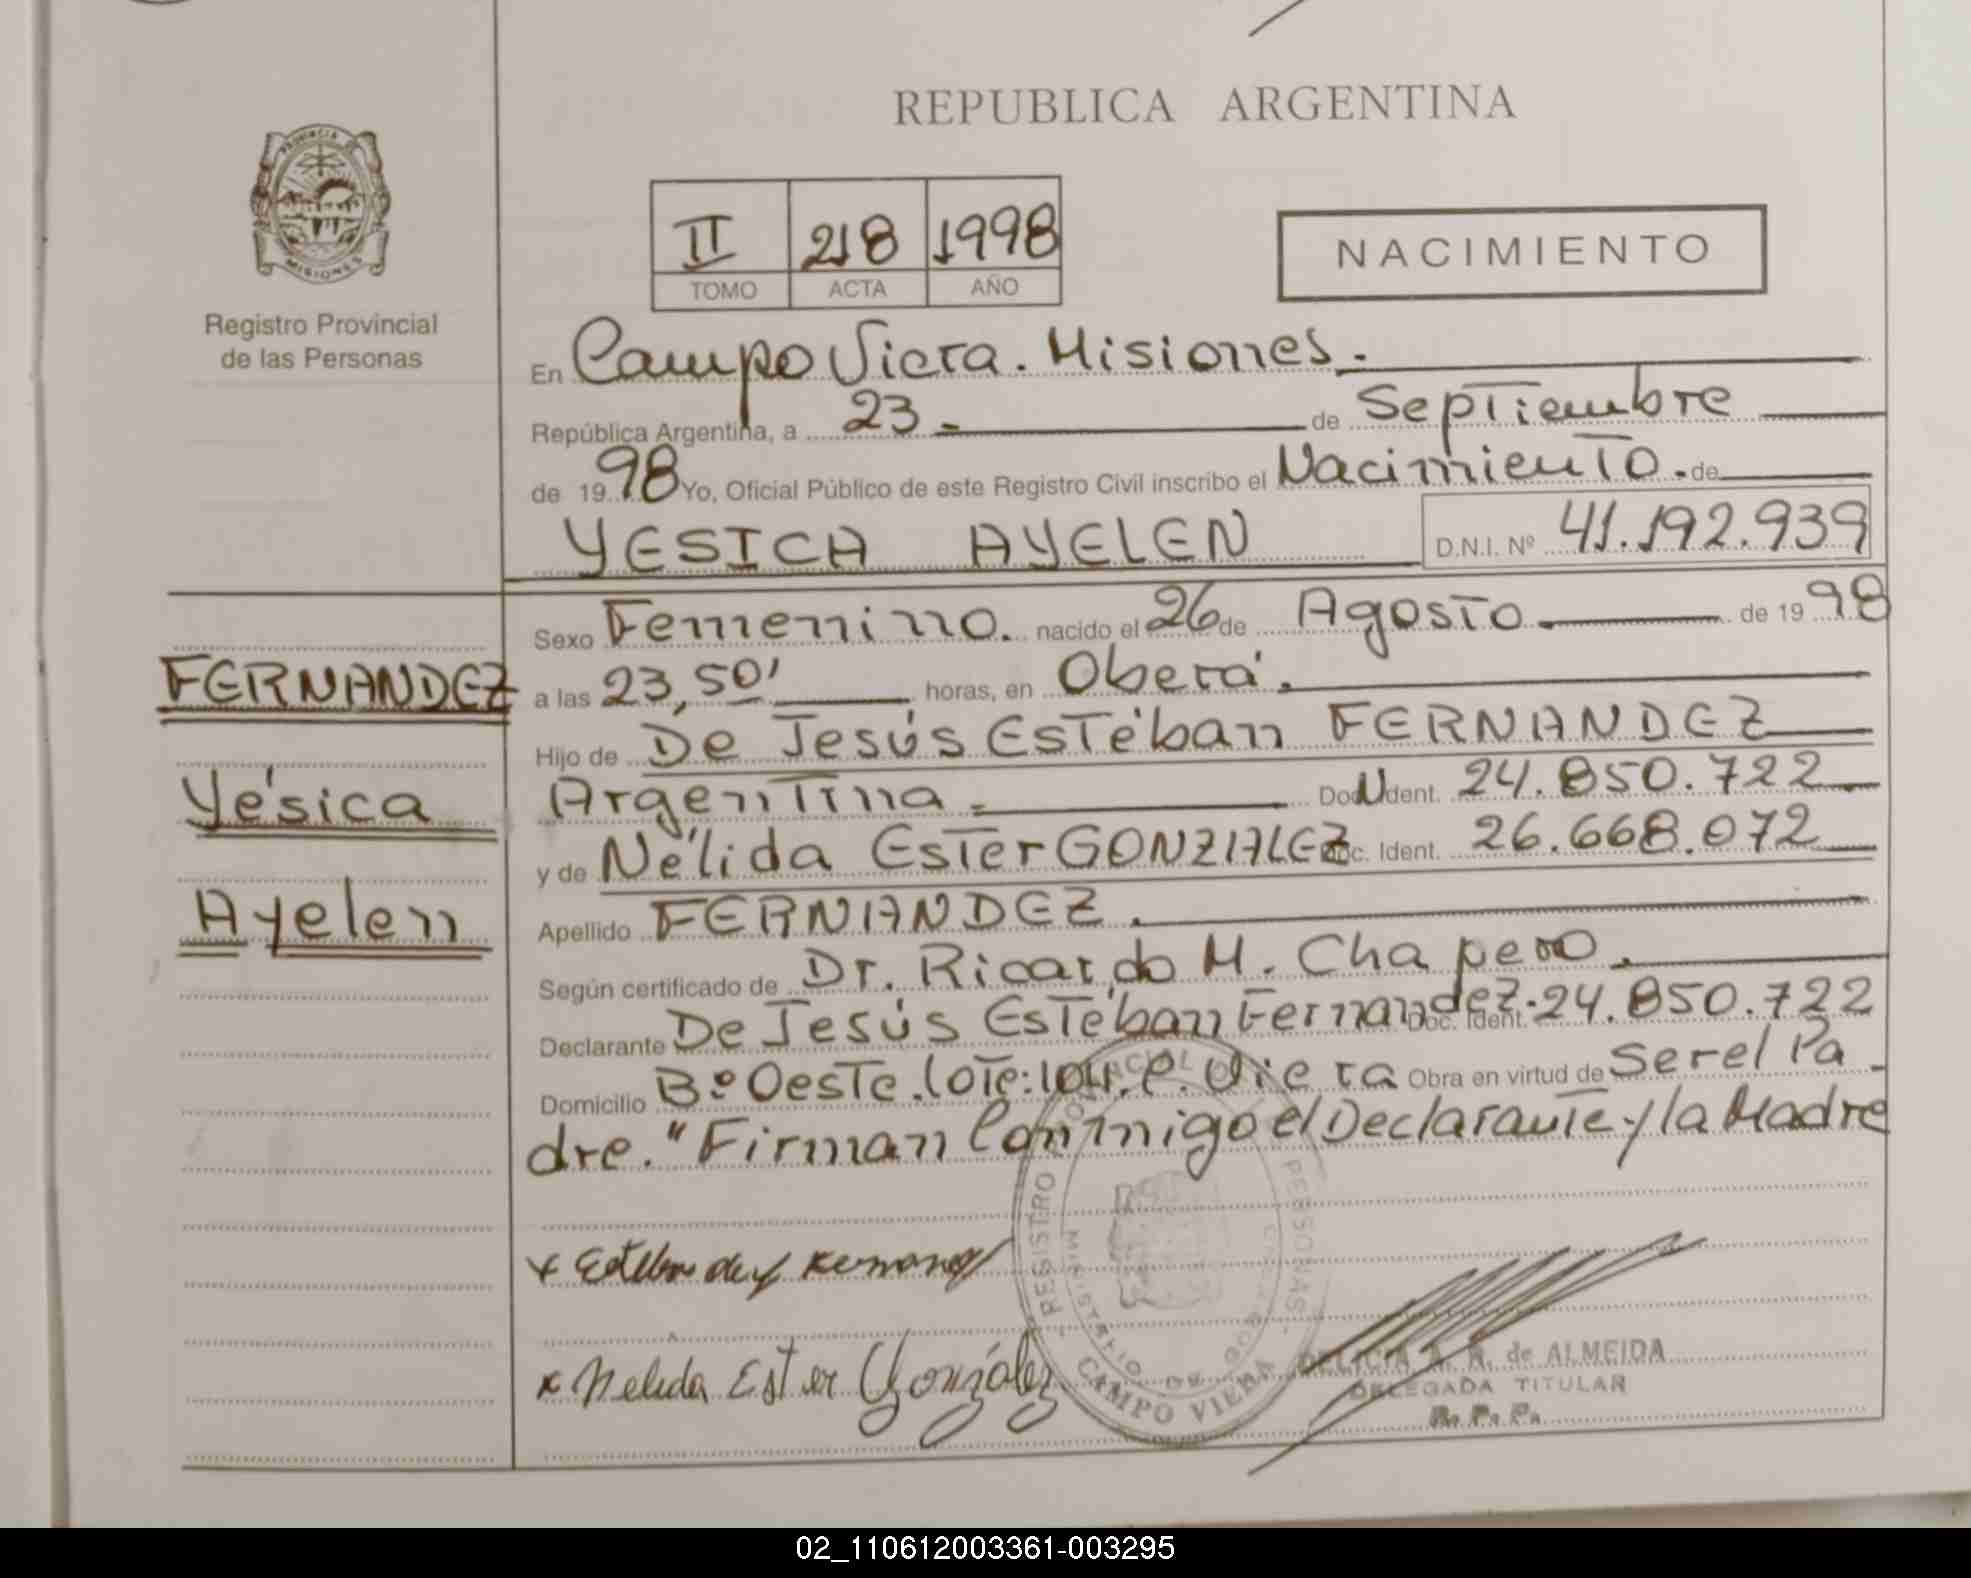 REPUBLICA ARGENTINA
PROVINCIA DE
MISIONES
Registro Provincial
de las Personas
II 218 1998
TOMO ACTA AÑO
NACIMIENTO
En Campo Viera. Misiones.
República Argentina, a 23 de Septiembre
de 1998 Yo, Oficial Público de este Registro Civil inscribo el Nacimiento. de
YESICA AYELEN D.N.I. Nº 41.192.939
Sexo Femenino. nacido el 26 de Agosto de 1998
FERNANDEZ
a las 23,50' horas, en Oberá.
Hijo de De Jesús Estéban FERNANDEZ
Yésica
Argentina Doc. Ident. 24.850.722
y de Nélida Ester GONZALEZ Doc. Ident. 26.668.072
Ayelen
Apellido FERNANDEZ.
Según certificado de Dr. Ricardo M. Chapero.
Declarante De Jesús Estéban Fernandez. Doc. Ident. 24.850.722
Domicilio Bº Oeste. lote: 104. C. Viera Obra en virtud de Ser el Pa
dre. "Firman Conmigo el Declarante y la Madre
x Esteban de J Fernandez
x Nelida Ester González
REGISTRO PROVINCIAL DE PERSONAS
MINISTERIO DE GOB
CAMPO VIERA
DELICIA A. R. de ALMEIDA
DELEGADA TITULAR
R. P. P.
02_110612003361-003295